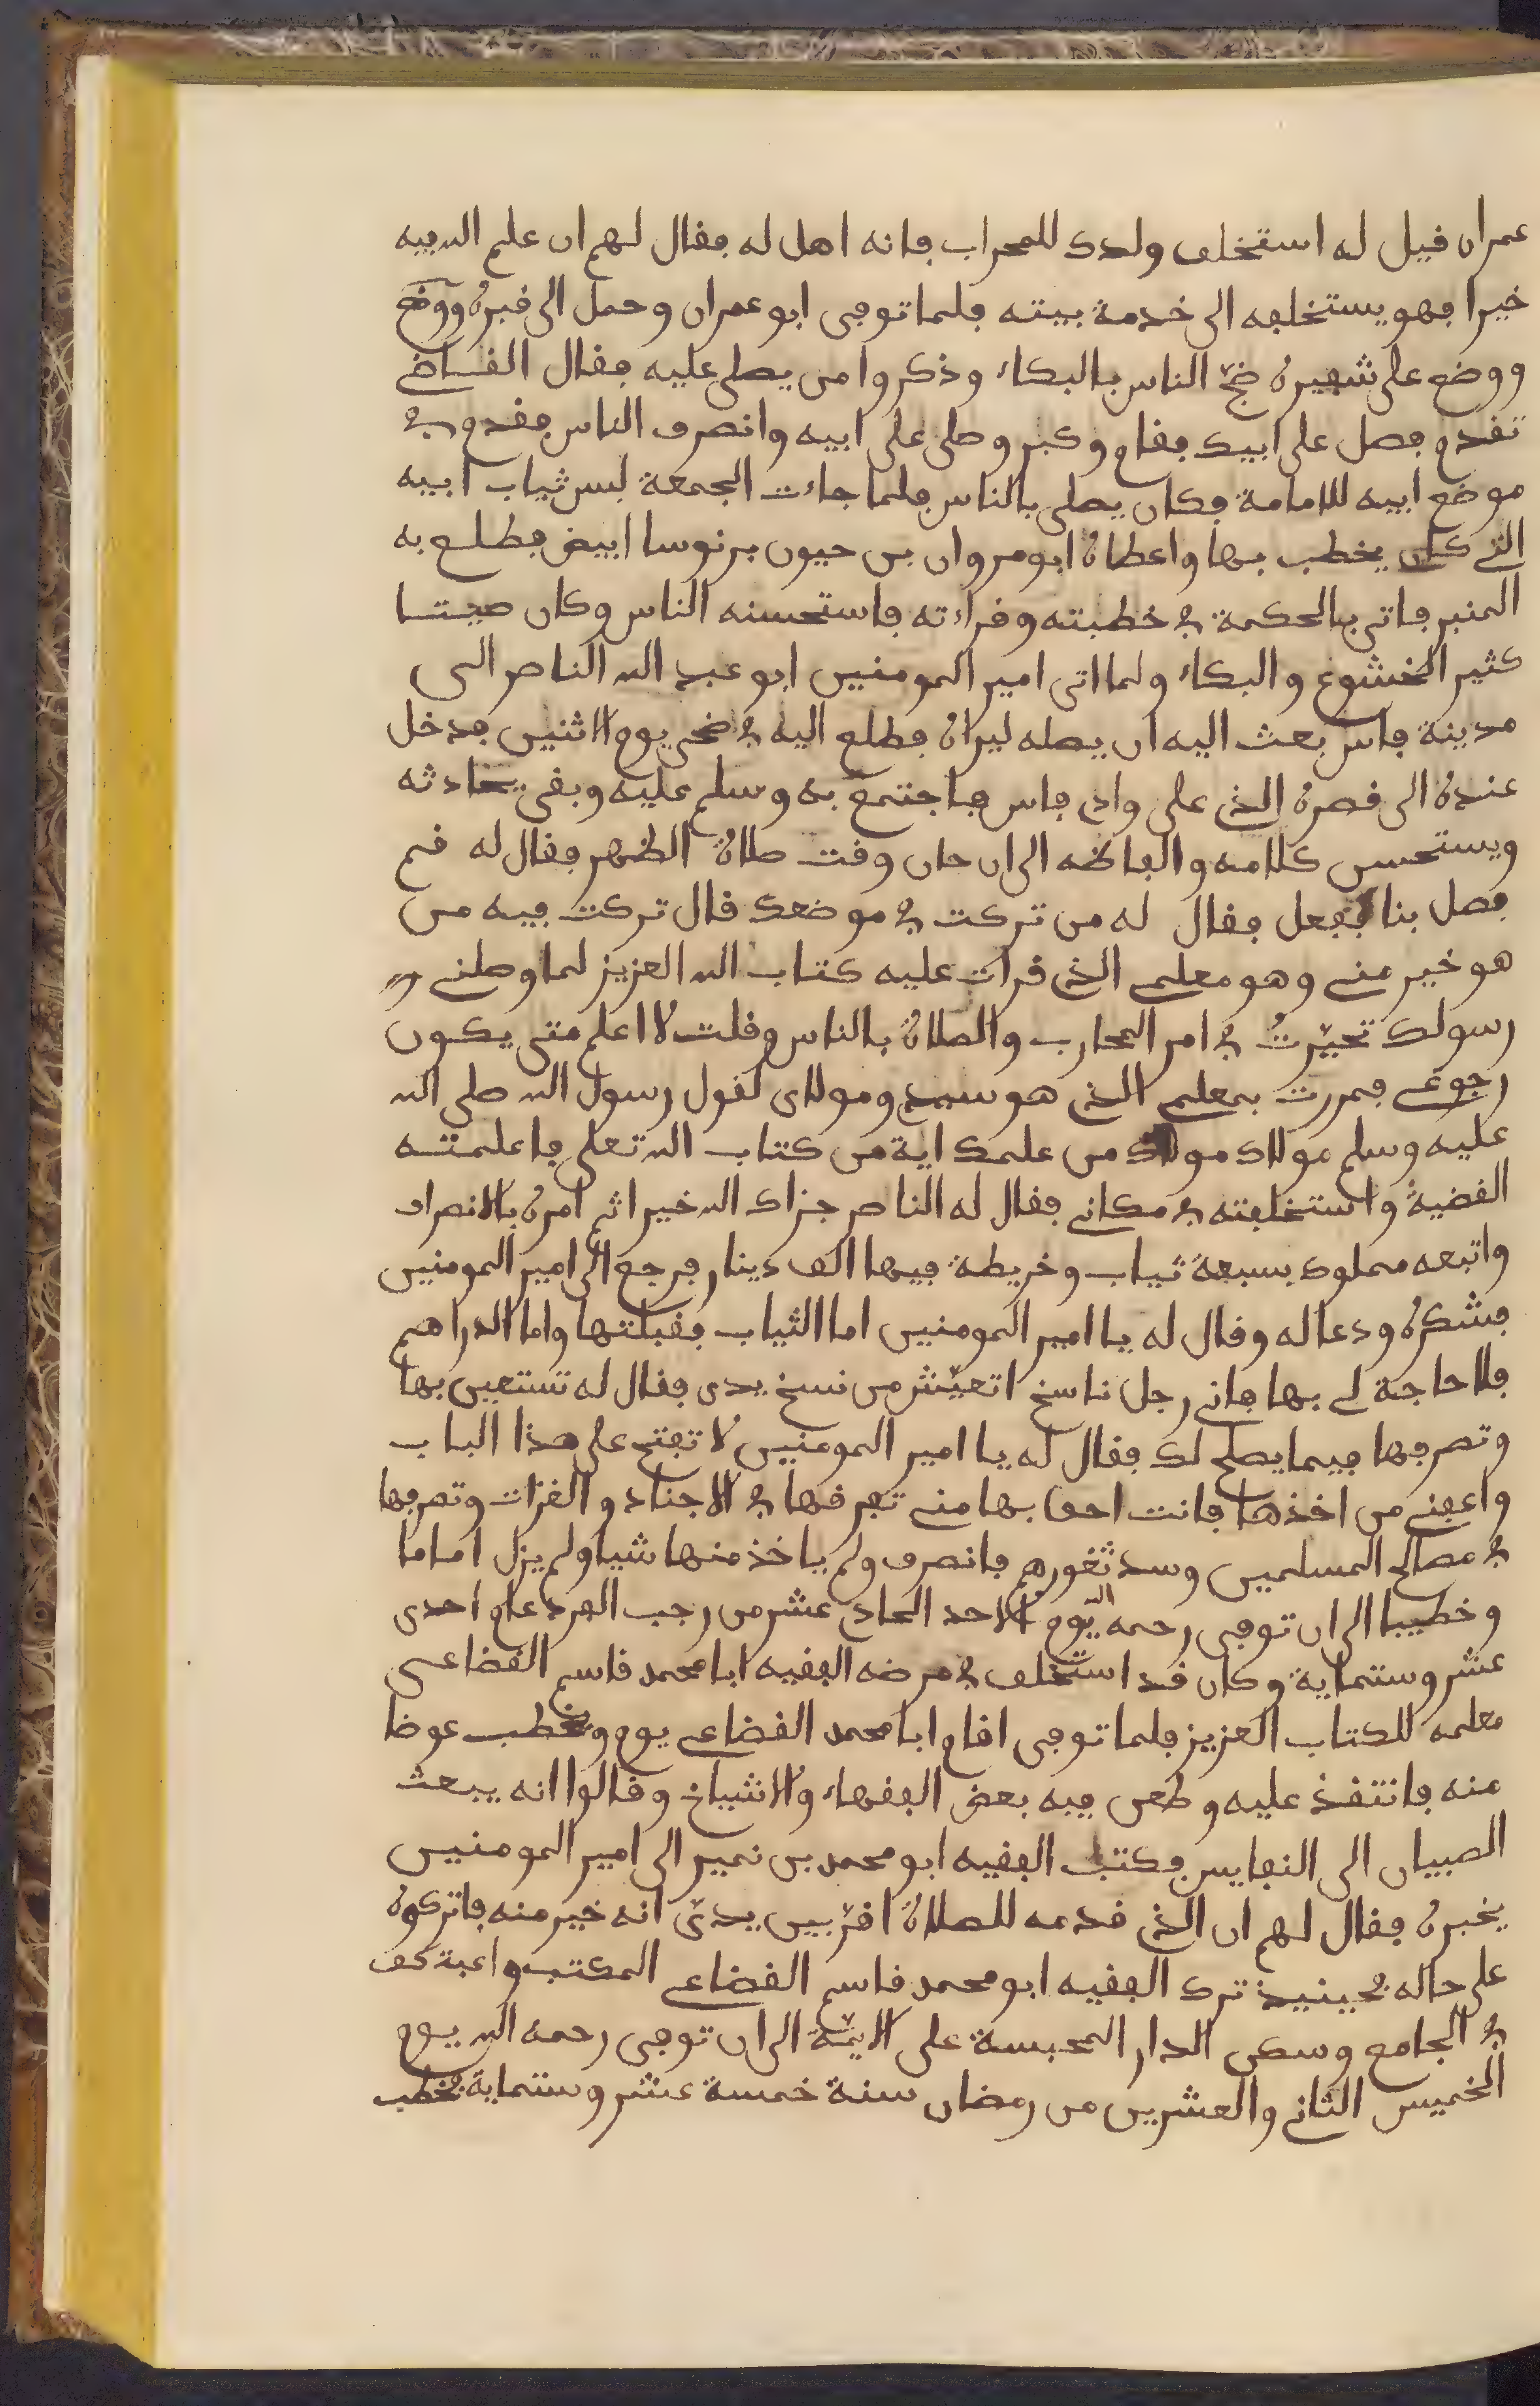 عمران قيل له استخلف ولدك للمحراب فانه اهل له فقال لهم ان علم الله فيه
خيرا فهو يستخلفه الى خدمة بيته فلما توفى ابو عمران وحمل الى قبره ووضع
ووضع على شفيره ضج الناس بالبكاء وذكروا من يصلى عليه فقال القاضى
تقدم فصل على ابيك فقام وكبر وصلى على ابيه وانصرف الناس فقدم في
موضع ابيه للامامة فكان يصلى بالناس فلما جاءت الجمعة لبس ثياب ابيه
التى كان يخطب بها واعطاه ابو مروان بن حيون برنوسا ابيض فطلع به
المنبر فاتى بالحكمة في خطبته وقراءته فاستحسنه الناس وكان صيتا
كثير الخشوع والبكاء ولما اتى امير المومنين ابو عبد الله الناصر الى
مدينة فاس بعث اليه ان يصله ليراه فطلع اليه في ضحى يوم الاثنين فدخل
عنده الى قصره الذى على وادى فاس فاجتمع به وسلم عليه وبقى يحادثه
ويستحسن كلامه والفاظه الى ان حان وقت صلاة الظهر فقال له قم
فصل بنا ففعل فقال له من تركت في موضعك قال تركت فيه من
هو خير منى وهو معلمى الذى قرات عليه كتاب الله العزيز لما وصلنى
رسولك تحيرت في امر المحارب والصلاة بالناس وقلت لا اعلم متى يكون
رجوعى فمررت بمعلمى الذى هو سيدى ومولاى لقول رسول الله صلى الله
عليه وسلم مولاك مولاك من علمك اية من كتاب الله تعلى فاعلمته
القضية واستخلفته في مكانى فقال له الناصر جزاك الله خيرا ثم امره بالانصراف
واتبعه مملوك بسبعة ثياب وخريطة فيها الف دينار فرجع الى امير المومنين
فشكره ودعا له وقال له يا امير المومنين اما الثياب فقبلتها واما الدراهم
فلا حاجة لى بها فانى رجل ناسخ اتعيش من نسخ يدى فقال له تستعين بها
وتصرفها فيما يصلح لك فقال له يا امير المومنين لا تفتح على هذا الباب
واعفنى من اخذها فانت احق بها منى تفرقها في الاجناد والغزات وتصرفها
في مصالح المسلمين وسد ثغورهم فانصرف ولم ياخذ منها شيا ولم يزل اماما
وخطيبا الى ان توفى رحمه الله يوم الاحد الحادى عشر من رجب الفرد عام احدى
عشر وستماية وكان قد استخلف في مرضه الفقيه ابا محمد قاسم القضاعى
معلمه للكتاب العزيز فلما توفى اقام ابا محمد القضاعى يوم ويخطب عوضا
منه فانتقد عليه وطعن فيه بعض الفقهاء والاشياخ وقالوا انه يبعث
الصبيان الى النفايس فكتب الفقيه ابو محمد بن نمير الى امير المومنين
يخبره فقال لهم ان الذى قدمه للصلاة اقر بين يدى انه خير منه فاتركوه
على حاله فحينيذ ترك الفقيه ابو محمد قاسم القضاعى المكتب واعتكف
في الجامع وسكن الدار المحبسة على الايمة الى ان توفى رحمه الله يوم
الخميس الثانى والعشرين من رمضان سنة خمسة عشر وستماية فخطب